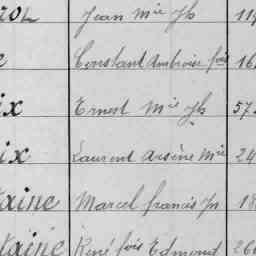 Jean Mie Jh 119
Constant Ambroise fois 16
ix Ernest Mie Jh 57
ix Laurent Arsène Mie 24
taine Marcel francis Jn 18
taine René fois Edmont 266